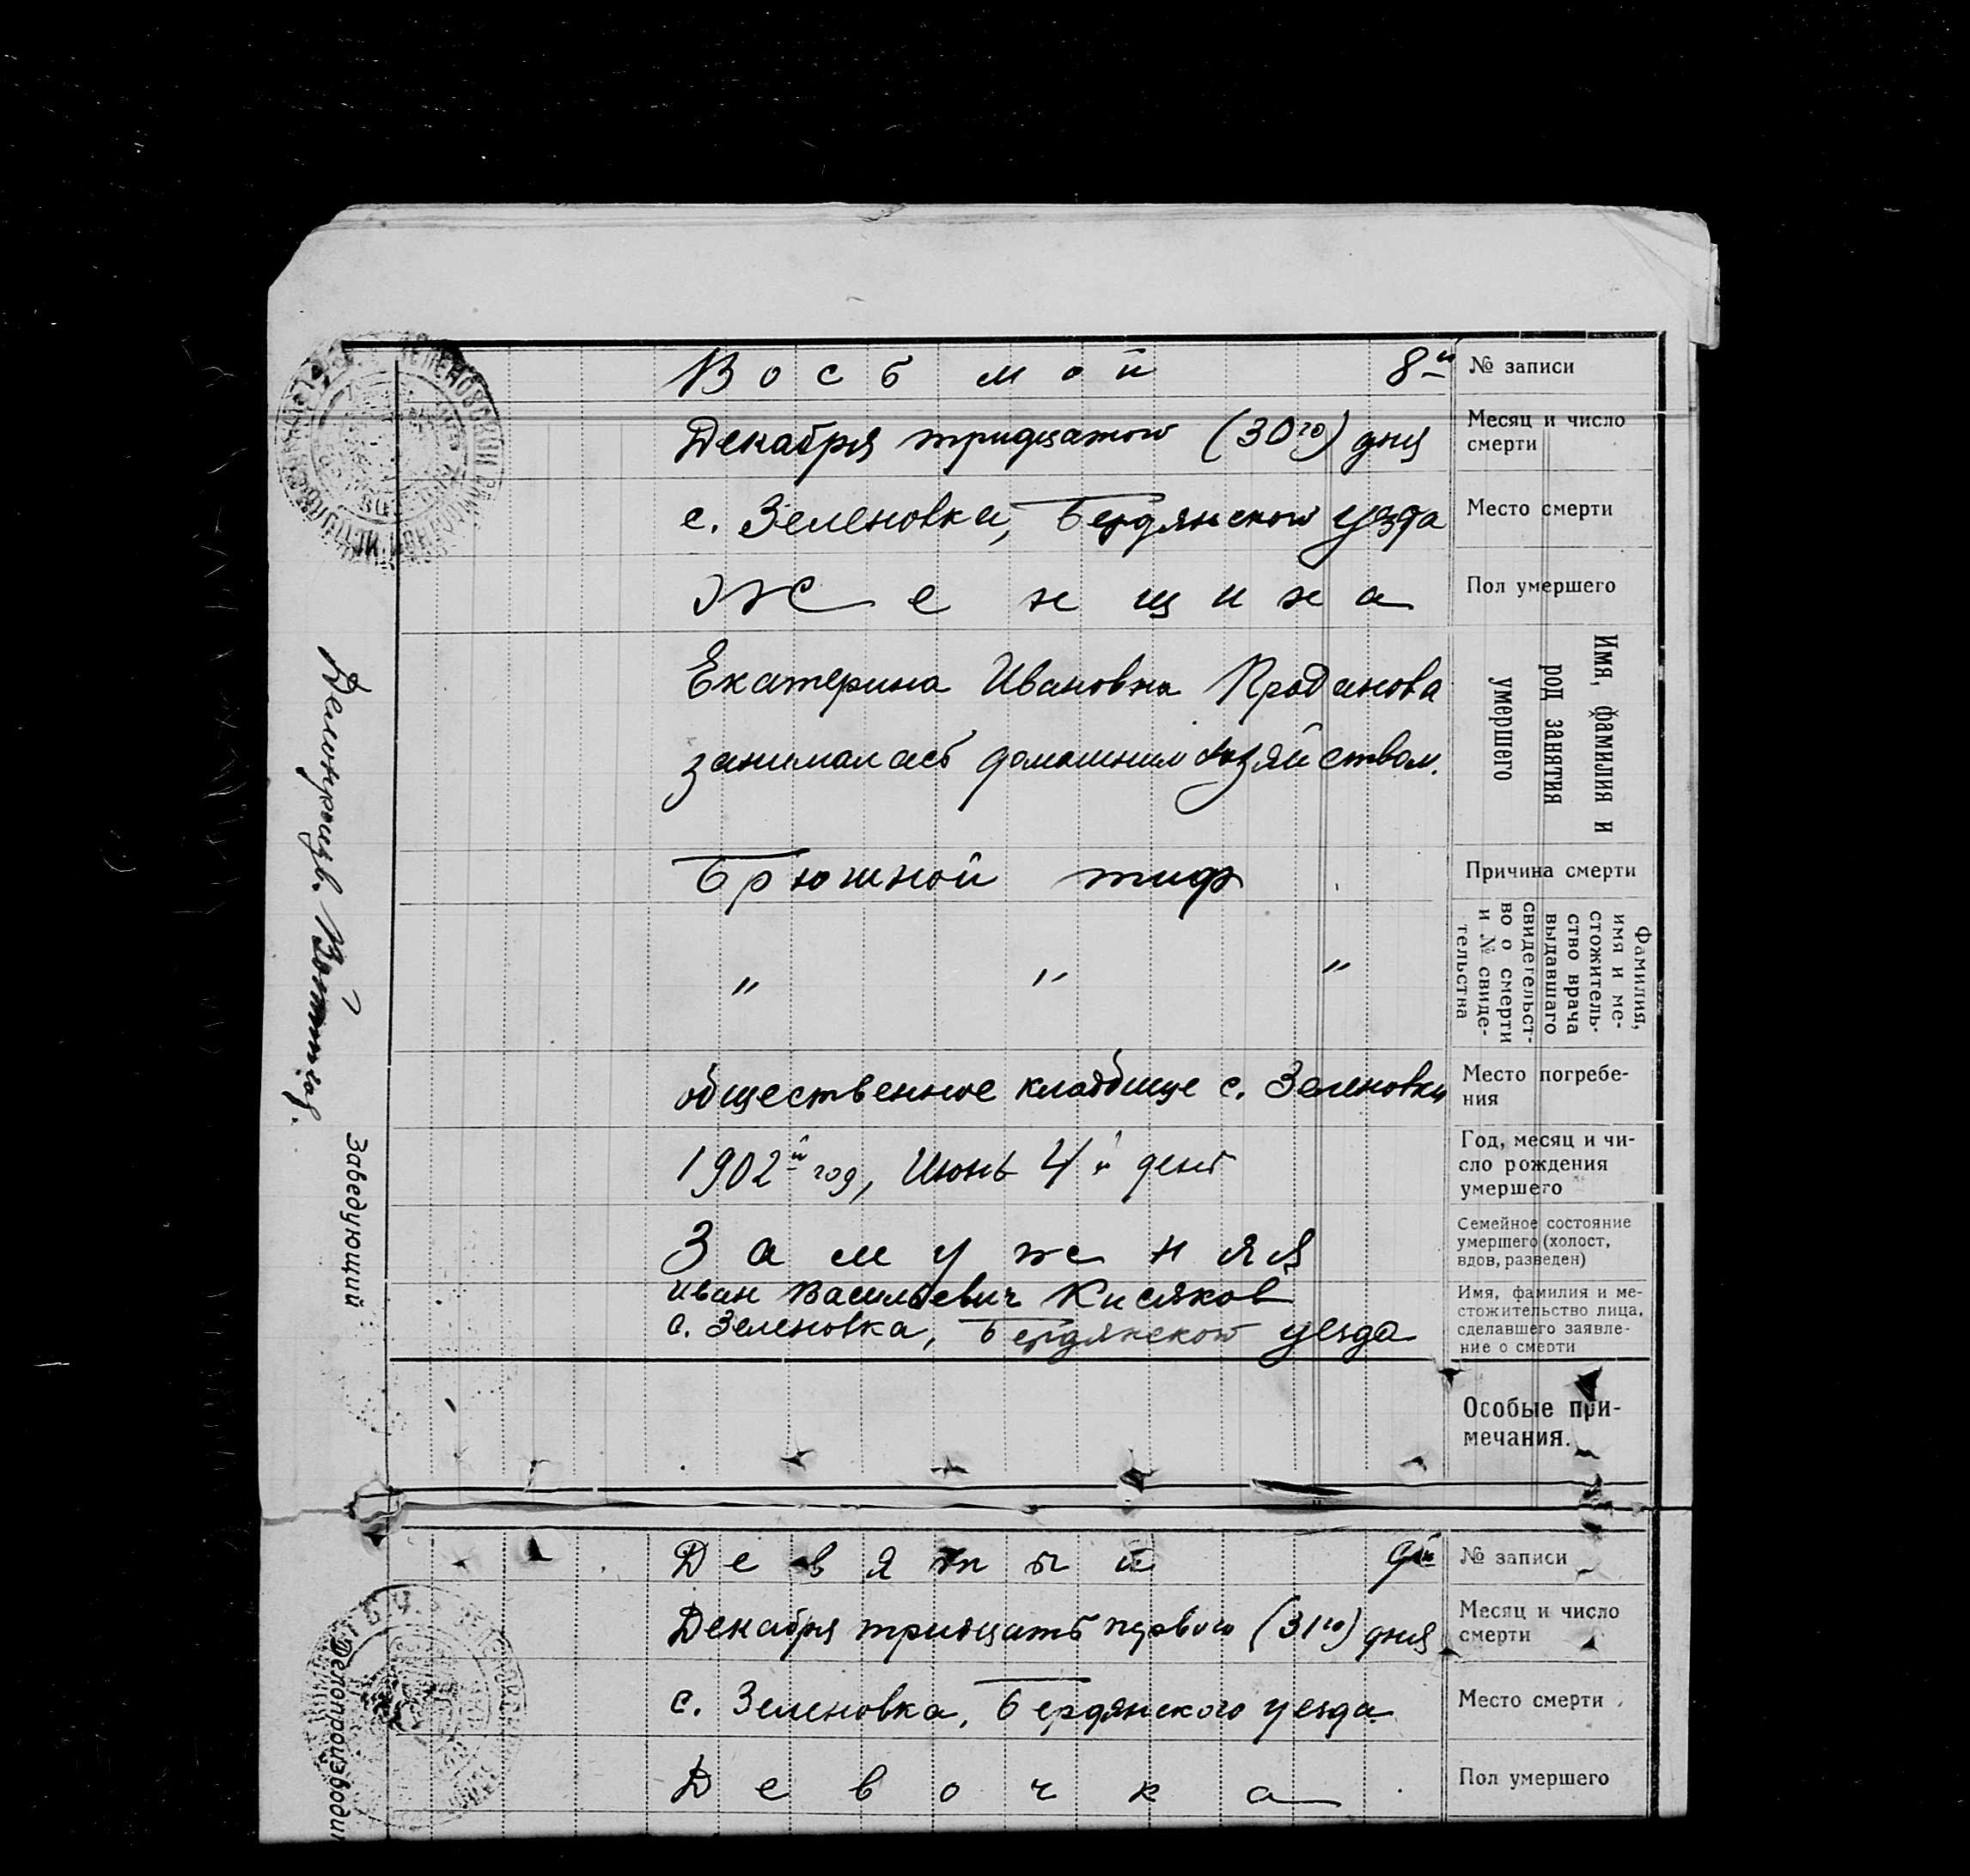 Восьмой 8й № записи
Декабря тридцатого (30го) дня Месяц и число
смерти
с. Зеленовка, Бердянского уезда Место смерти
Женщина Пол умершего
Екатерина Ивановна Проданова
занималась домашним хозяйством.
Имя, фамилия и
род занятия
умершего
Брюшной тиф Причина смерти
" " "
Фамилия,
имя и ме-
стожитель-
ство врача
выдавшаго
свидетельст-
во о смерти
и № свиде-
тельства
общественное кладбище с. Зеленовки Место погребе-
ния
1902й год, Июнь 4й день Год, месяц и чи-
сло рождения
умершего
Замужняя Семейное состояние
умершего (холост,
вдов, разведен)
Иван Васильевич Кисяков
с. Зеленовка, Бердянского уезда
Имя, фамилия и ме-
стожительство лица,
сделавшего заявле-
ние о смерти
Особые при-
мечания.
Заведующий
Девятый 9й № записи
Декабря тридцать первого (31го) дня Месяц и число
смерти
с. Зеленовка, Бердянского уезда. Место смерти
Девочка Пол умершего